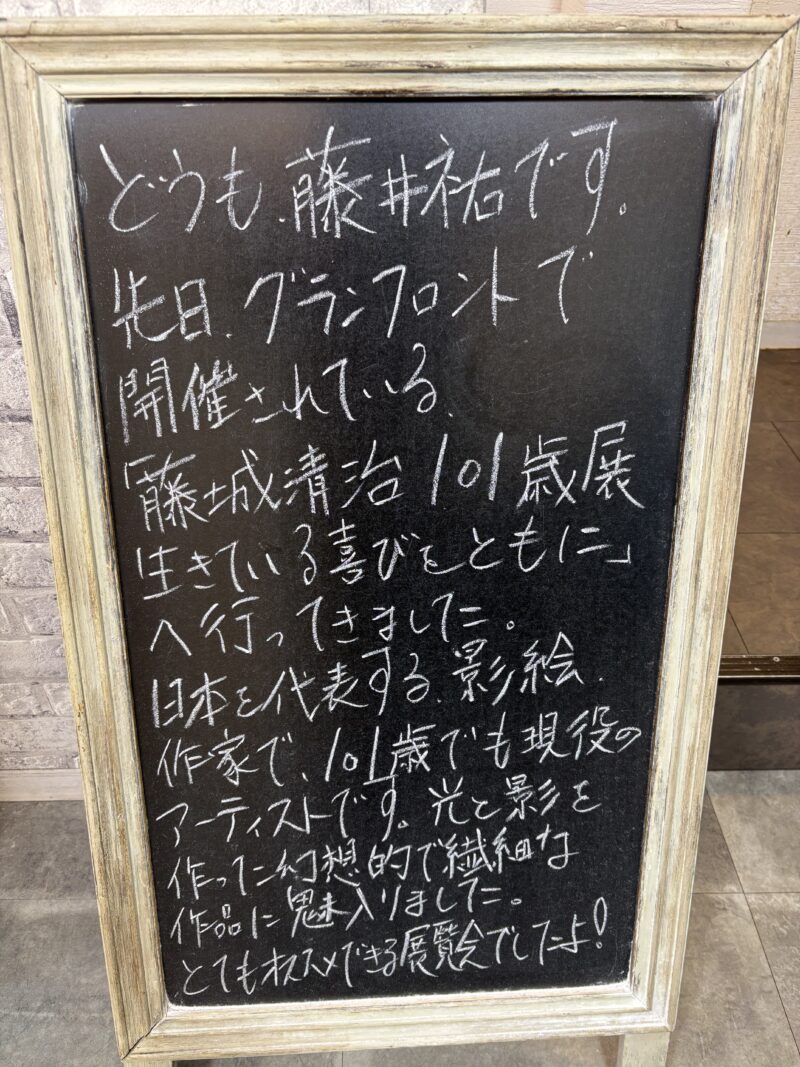 どうも、藤井祐です。
先日、グランフロントで
開催されている、
「藤城清治101歳展
生きている喜びをともに」
へ行ってきました。
日本を代表する、影絵、
作家で、101歳でも現役の
アーティストです。光と影を
作った幻想的で繊細な
作品に魅入りました。
とてもオススメできる展覧会でしたよ!